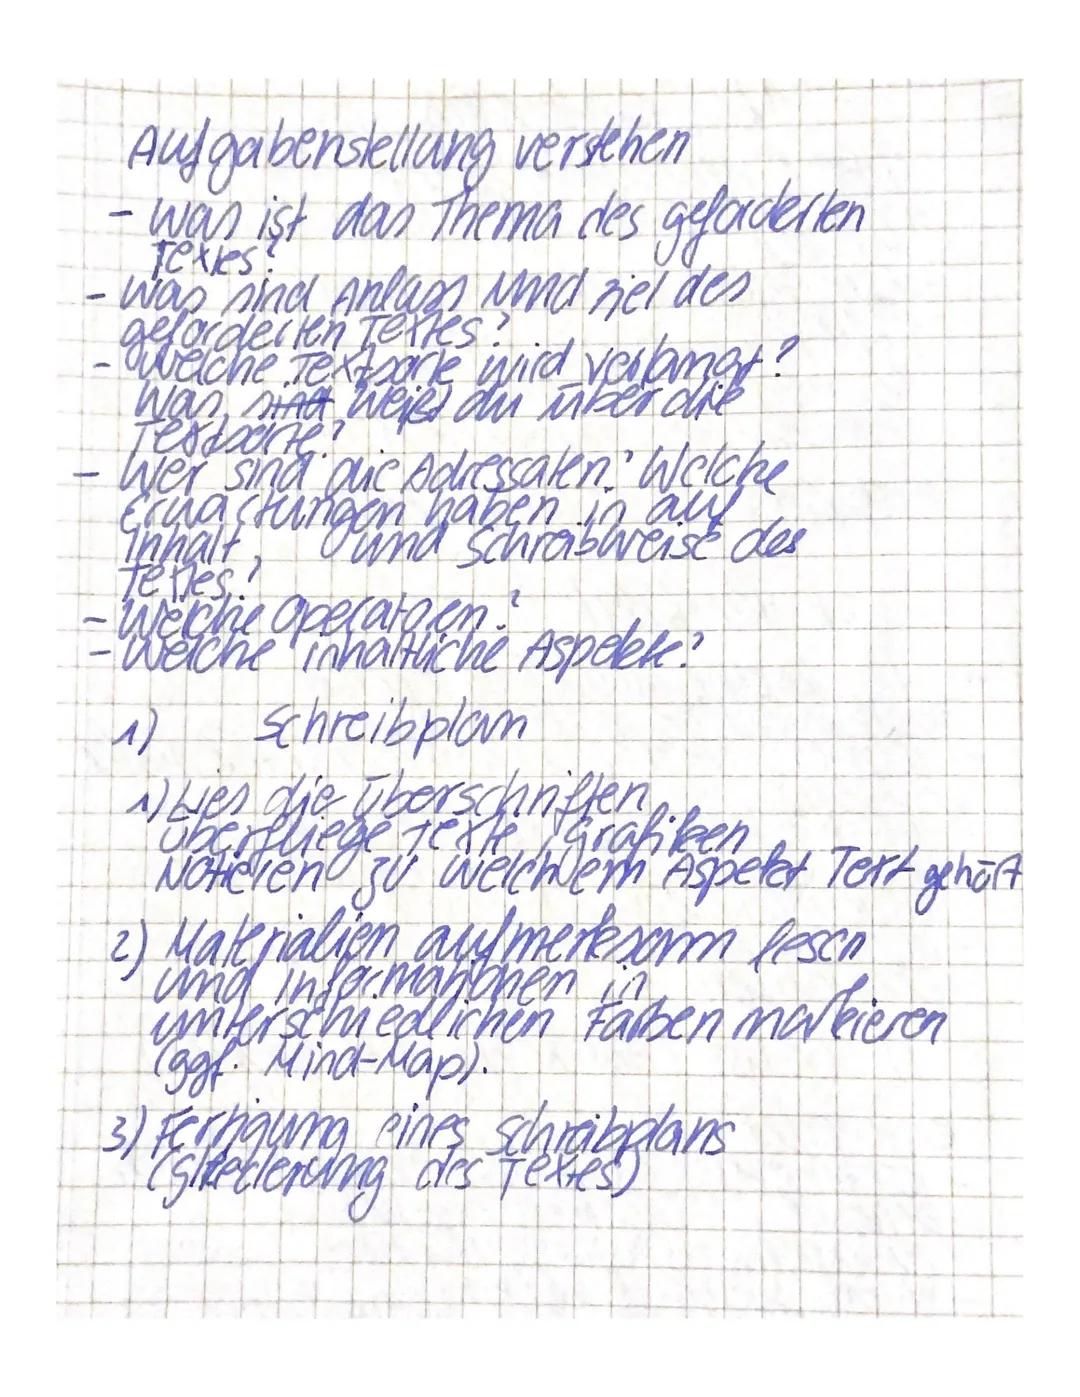 Aufgabenstellung verstehen
- Was ist das Thema des geforderten
Textes?
- Was sind Anlass und Ziel des
geforderten Textes?
- Welche Textsorte wird verlangt?
Was sind weist du über die
Textsorte?
- Wer sind die Adressaten? Welche
Erwartungen haben in auf
Inhalt, und Schreibweise des
Textes?
- Welche Operatoren?
- Welche inhaltliche Aspekte?
1) Schreibplan
1) Lies die Überschriften,
überfliege Texte, Grafiken
Notieren zu welchem Aspekt Text gehört
2) Materialien aufmerksam lesen
und Informationen in
unterschiedlichen Farben markieren
(ggf. Mind-Map).
3) Fertigung eines Schreibplans
(Gliederung des Textes)